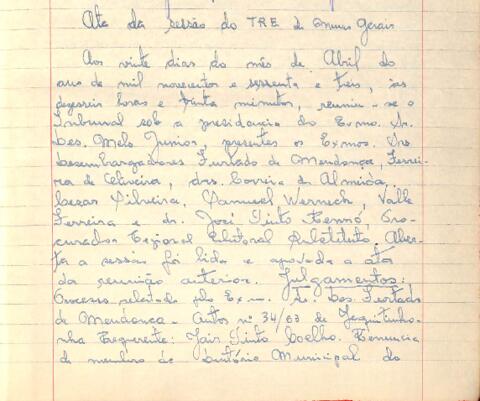 Ata da sessão do TRE de Minas Gerais
Aos vinte dias do mês de Abril do
ano de mil novecentos e sessenta e três, às
dezesseis horas e trinta minutos, reuniu-se o
Tribunal sob a presidencia do Exmo. Sr.
Des. Melo Junior, presentes os Exmos. Srs.
Desembargadores Furtado de Mendonça, Ferrei-
ra de Oliveira, drs. Correia de Almeida,
Cezar Silveira, Samuel Werneck, Valle
Ferreira e dr. José Pinto Rennó, Pro-
curador Regional Eleitoral Substituto. Aber-
ta a sessão foi lida e aprovada a ata
da reunião anterior. Julgamentos:
Processo relatado pelo Exm. Sr. Des. Furtado
de Mendonça - Autos nº 34/63 de Jequitinho-
nha Requerente: Jair Pinto Coelho. Renuncia
de membro de Diretório Municipal do